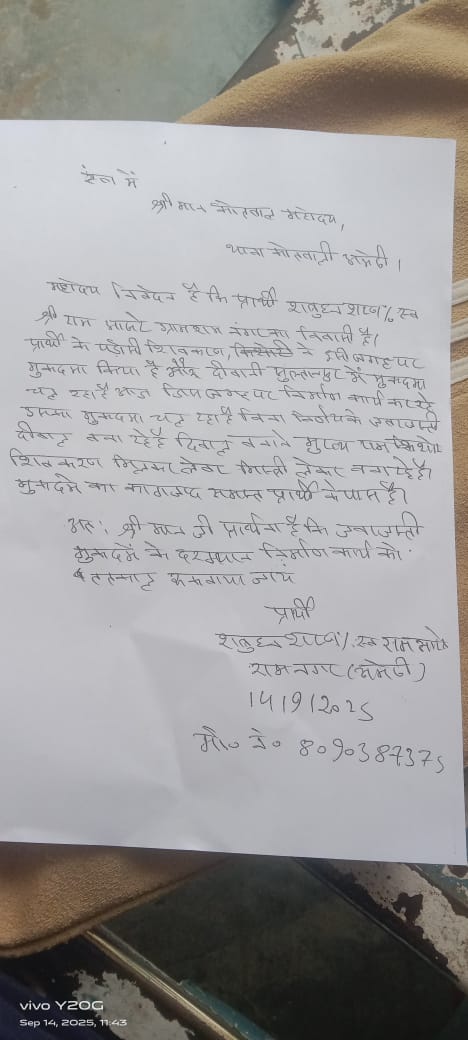 सेवा में
श्री मान कोतवाल महोदय,
थाना कोतवाली अमेठी।
महोदय निवेदन है कि प्रार्थी शत्रुघ्न शरण % स्व
श्री राम आधार ग्राम राम नगर का निवासी है।
प्रार्थी के पड़ोसी शिवकरण, ने इसी जगह पर
मुकदमा किया है और दीवानी सुल्तानपुर में मुकदमा
चल रहा है जिस जगह पर निर्माण कार्य कर रहे
उसका मुकदमा चल रहा है बिना निर्णय के जबरजस्ती
दीवाल बना रहे है दिवाल बनाने मुख्य राम
शिव करण मिलकर लेबर मिस्त्री लेकर बना रहे है।
मुकदमे का कागजाद समस्त प्रार्थी के पास है।
अतः श्री मान जी प्रार्थना है कि जबरजस्ती
मुकदमें के दरम्यान निर्माण कार्य को
तत्काल रुकवाया जाय
प्रार्थी
शत्रुघ्न शरण %. स्व राम
राम नगर (अमेठी)
14/9/2025
मो० नं० 8090387375
vivo Y20G
Sep 14, 2025, 11:43